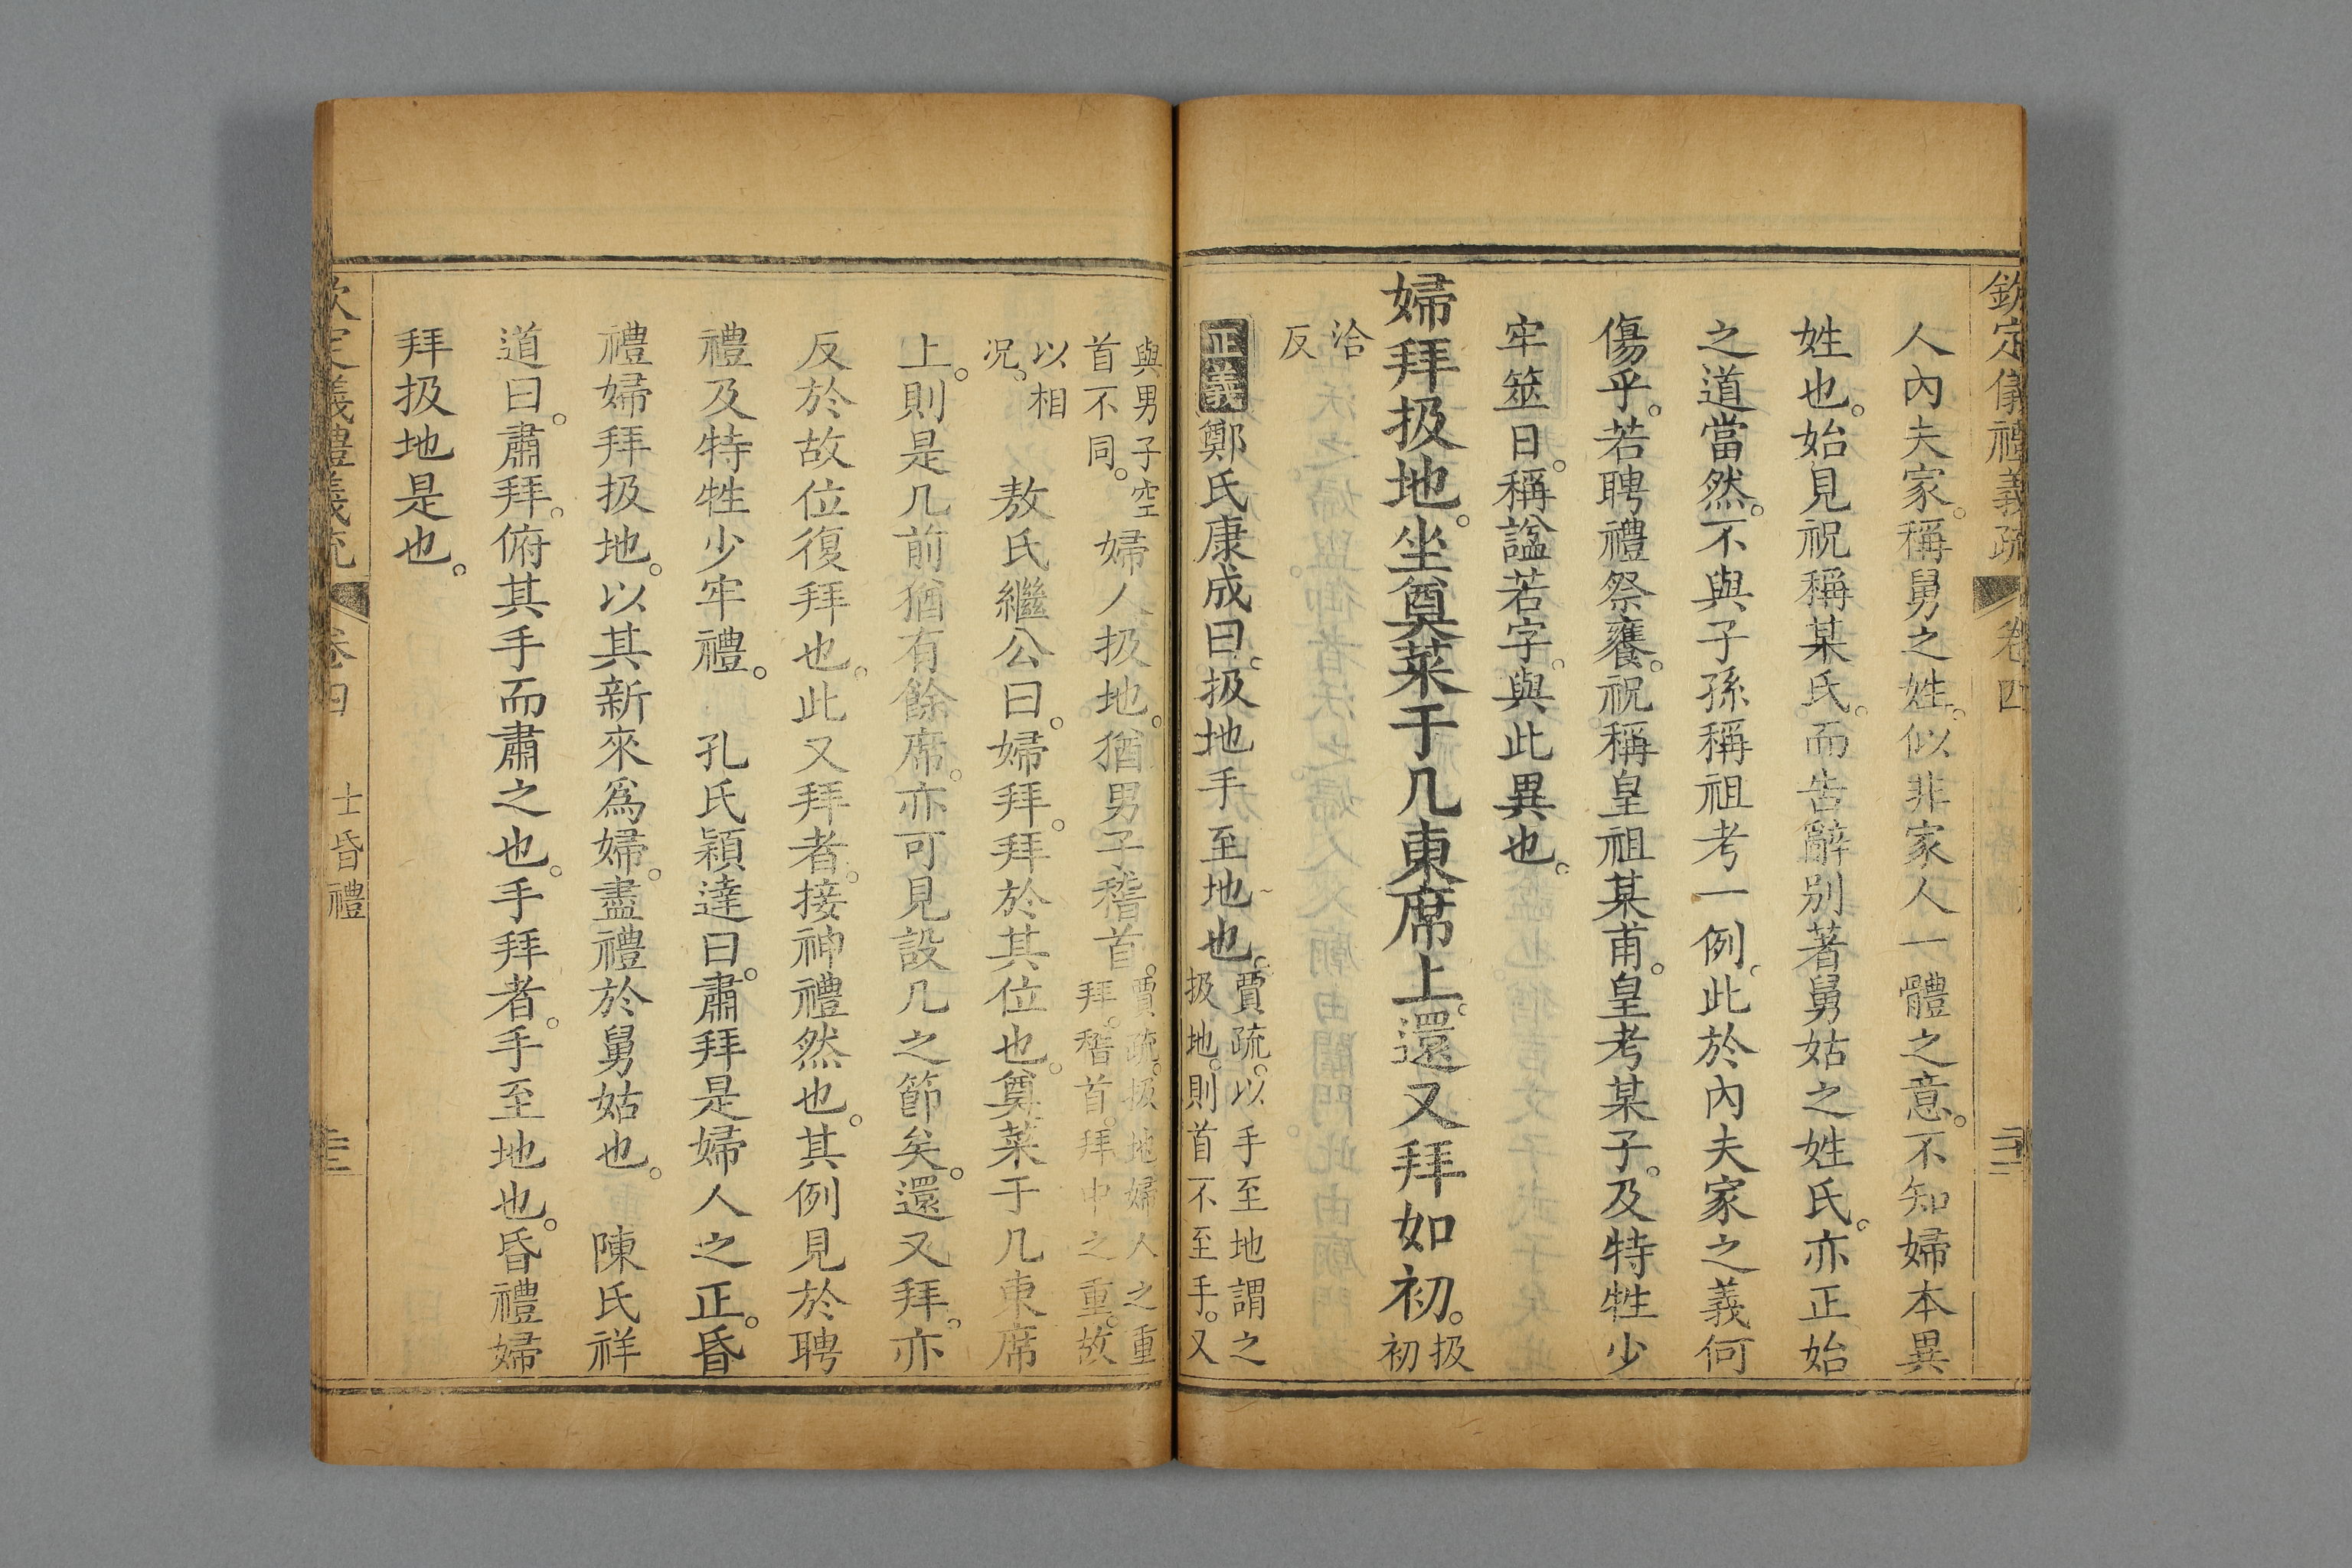 欽定儀禮義疏 卷四
人內夫家。稱舅之姓。似非家人一體之意。不知婦本異
姓也。始見祝稱某氏。而告辭別著舅姑之姓氏。亦正始
之道當然。不與子孫稱祖考一例。此於內夫家之義何
傷乎。若聘禮祭饔。祝稱皇祖某甫。皇考某子。及特牲少
牢筮日。稱諡若字。與此異也。
婦拜扱地。坐奠菜于几東席上。還又拜如初。扱
初
洽
反
正義鄭氏康成曰。扱地手至地也。賈疏。以手至地謂之
扱地。則首不至手。又
與男子空
首不同。婦人扱地。猶男子稽首。賈疏。扱地婦人之重
拜。稽首。拜中之重。故
以相
况。敖氏繼公曰。婦拜。拜於其位也。奠菜于几東席
上。則是几前猶有餘席。亦可見設几之節矣。還又拜。亦
反於故位復拜也。此又拜者。接神禮然也。其例見於聘
禮及特牲少牢禮。 孔氏穎達曰。肅拜是婦人之正。昏
禮婦拜扱地。以其新來爲婦。盡禮於舅姑也。 陳氏祥
道曰。肅拜。俯其手而肅之也。手拜者。手至地也。昏禮婦
拜扱地是也。
欽定儀禮義疏 卷四 士昏禮